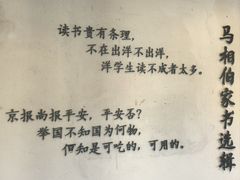 马相伯家书选辑
读书贵有条理，
不在出洋不出洋，
洋学生读不成者太多。
京报尚报平安，平安否？
举国不知国为何物，
但知是可吃的，可用的。